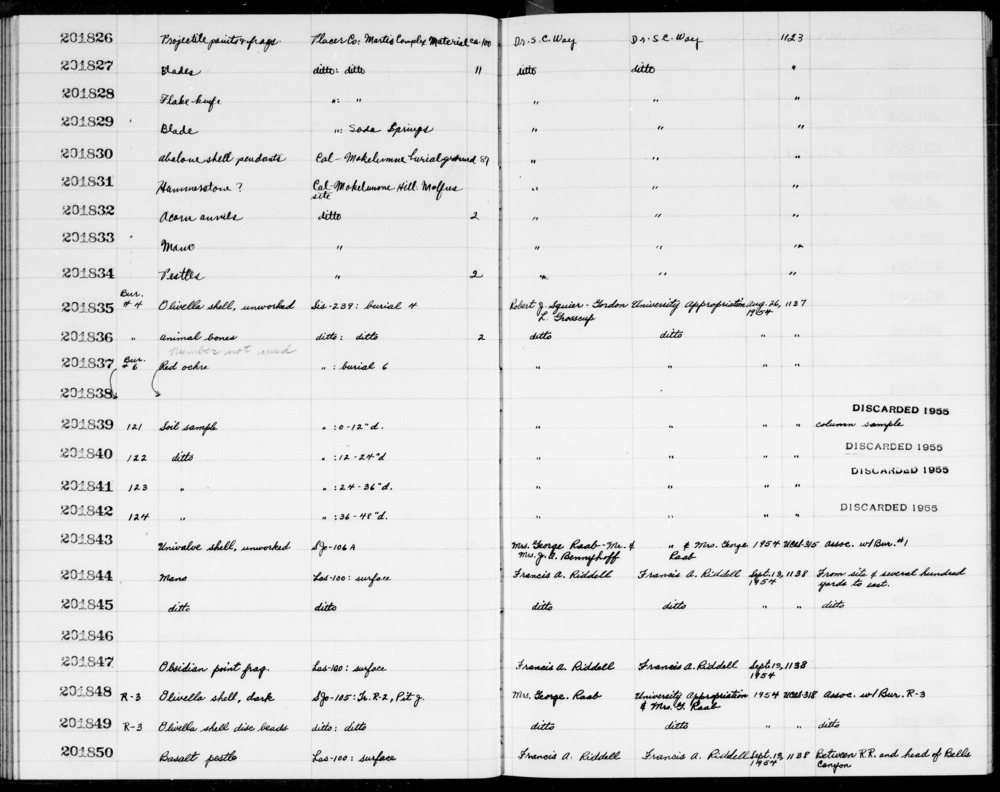 201826 Projectile points & frags. Placer Co: Martis Complex Material ca. 100 Dr. S. C. Way Dr. S. C. Way 1123
201827 Blades ditto: ditto 11 ditto ditto "
201828 Flake knife ": " " " "
201829 Blade ": Soda Springs " " "
201830 abalone shell pendants Cal - Mokelumne burial ground 89 " " "
201831 Hammerstone? Cal-Mokelumne Hill. Molfus " " "
site
201832 Acorn anvils ditto 2 " " "
201833 Mano " " " "
201834 Pestles " 2 " " "
Bur.
201835 #4 Olivella shell, unworked Sis-239: burial 4 Robert J. Squier - Gordon University Appropriation Aug. 26, 1137
L. Grosscup 1954
201836 " animal bones ditto: ditto 2 ditto ditto " "
number not used
201837 Bur. #6 Red ochre ": burial 6 " " " "
201838
DISCARDED 1955
201839 121 Soil sample ": 0-12" d. " " " " column sample
201840 122 ditto ": 12-24" d " " " " DISCARDED 1955
201841 123 " ": 24-36" d. " " " " DISCARDED 1955
201842 124 " ": 36-48" d. " " " " DISCARDED 1955
201843 Univalve shell, unworked SJo-106A Mrs. George Raab - Mr. & " & Mrs. George 1954 UCAS-315 Assoc. w/ Bur. #1
Mrs. J. A. Bennyhoff Raab
201844 Mano Las-100: surface Francis A. Riddell Francis A. Riddell Sept. 13, 1138 From site & several hundred
1954 yards to east.
201845 ditto ditto ditto ditto " " ditto
201846
201847 Obsidian point frag. Las-100: surface Francis A. Riddell Francis A. Riddell Sept. 13, 1138
1954
201848 R-3 Olivella shell, dark SJo-105: Tr. R-2, Pit J. Mrs. George. Raab University Appropriation 1954 UCAS-318 Assoc. w/ Bur. R-3
& Mrs. G. Raab
201849 R-3 Olivella shell disc beads ditto: ditto ditto ditto " " ditto
201850 Basalt pestle Las-100: surface Francis A. Riddell Francis A. Riddell Sept. 13, 1138 Between R.R. and head of Bells
1954 Canyon